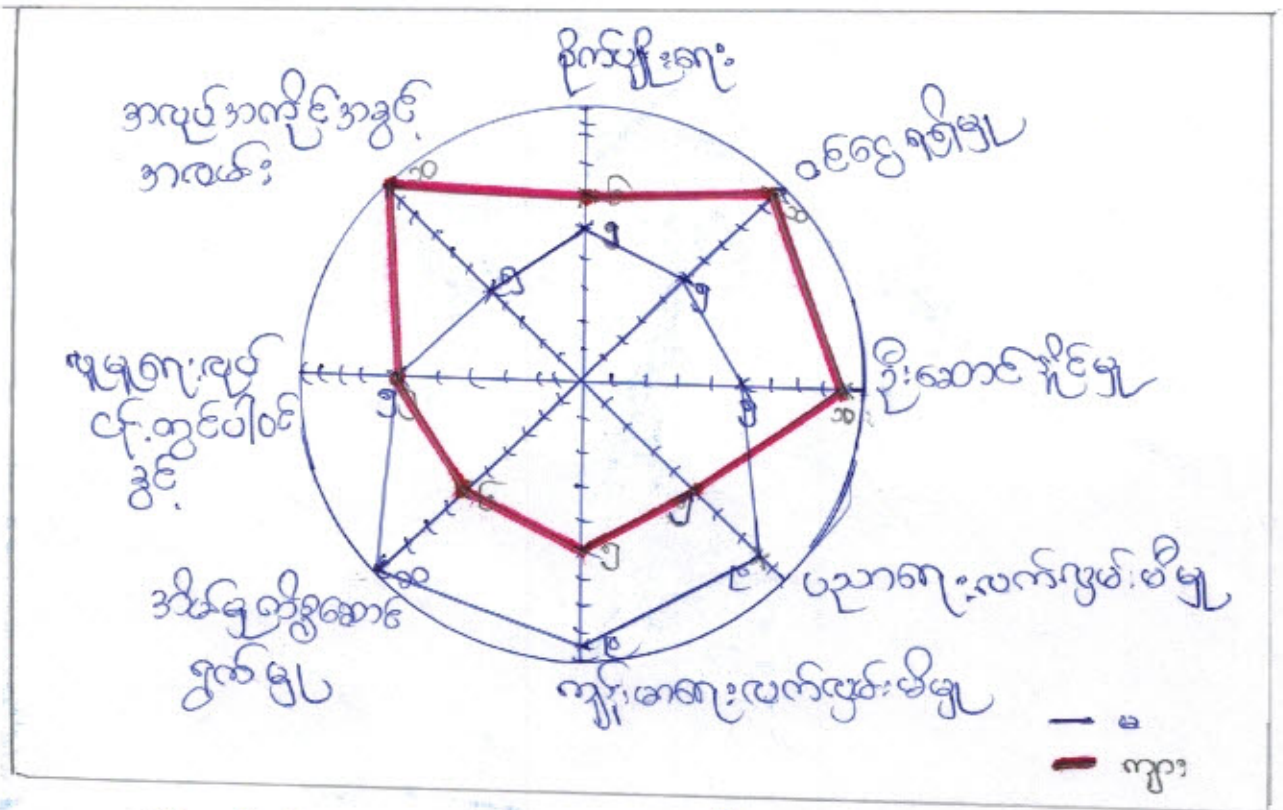 စိုက်ပျိုးရေး
ဝင်ငွေရရှိမှု
ဦးဆောင်နိုင်မှု
ပညာရေးလက်လှမ်းမီမှု
ကျန်းမာရေးလက်လှမ်းမီမှု
အိမ်မှုကိစ္စဆောင်
ရွက်မှု
လူမှုရေးလုပ်
ငန်းတွင်ပါဝင်
ခွင့်
အလုပ်အကိုင်အခွင့်
အလမ်း
၁၀
၆
၁၀
၅
၅
၅
၁၀
၅
၉
၅
၉
၆
၁၀
မ
ကျား